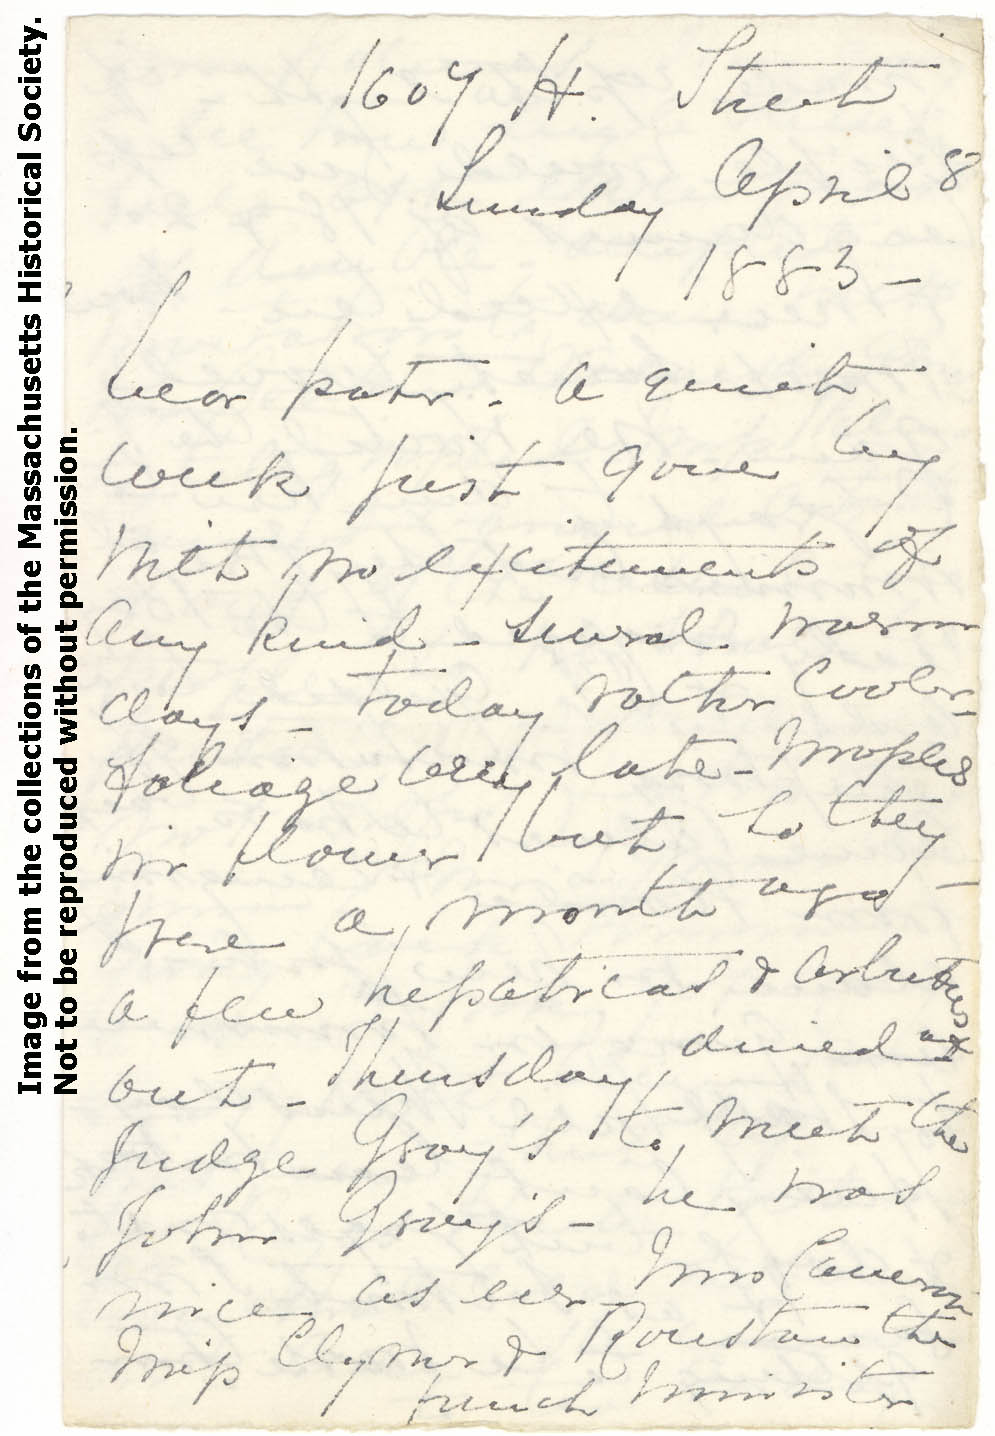 Image from the collections of the Massachusetts Historical Society.
Not to be reproduced without permission.
1607 H. Street
Sunday April 8
1883 –
Dear pater – A quiet
week just gone by
with no excitements of
any kind – several warm
days – today rather cooler –
Foliage very late – Maples
in flower but so they
were a month ago –
a few hepaticas & arbutus
out – Thursday dined at
Judge Gray's to meet the
John Gray's – he was
nice as ever – Mrs Cameron
Miss Clymer & Roustan the
french minister